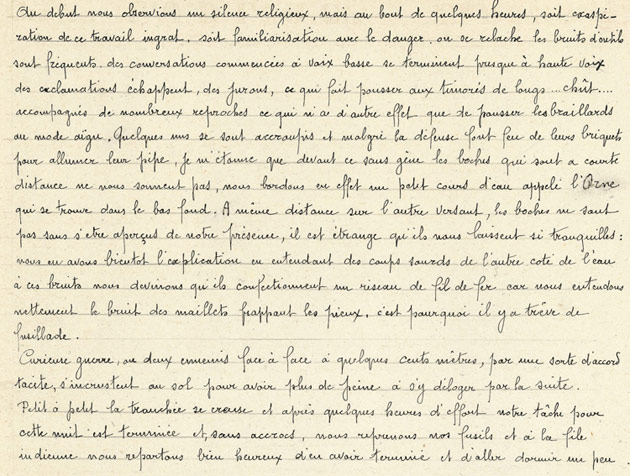 Au debut nous observions un silence religieux, mais au bout de quelques heures, soit exaspé-
ration de ce travail ingrat. soit familiarisation avec le danger. on se relache les bruits d'outils
sont fréquents. des conversations commencées à voix basse se terminent presque à haute voix
des exclamations échappent, des jurons, ce qui fait pousser aux timorés de longs ... chût....
accompagnés de nombreux reproches ce qui n'a d'autre effet que de pousser les braillards
au mode aigu. Quelques uns se sont accroupis et malgré la défense font feu de leurs briquets
pour allumer leur pipe, Je m'étonne que devant ce sans gêne les boches qui sont a courte
distance ne nous sonnent pas, nous bordons en effet un petit cours d'eau appelé l'Orne
qui se trouve dans le bas fond. A même distance sur l'autre versant, les boches ne sont
pas sans s'etre aperçus de notre présence, il est étrange qu'ils nous laissent si tranquilles:
nous en avons bientot l'explication en entendant des coups sourds de l'autre coté de l'eau
à ces bruits nous devinons qu'ils confectionnent un réseau de fil de fer car nous entendons
nettement le bruit des maillets frappant les pieux. c'est pourquoi il y a trêve de
fusillade.
Curieuse guerre, ou deux ennemis face à face à quelques cents mètres, par une sorte d'accord
tacite, s'incrustent au sol pour avoir plus de peine à s'y déloger par la suite.
Petit à petit la tranchée se creuse et après quelques heures d'effort notre tâche pour
cette nuit est terminée et, sans accrocs, nous reprenons nos fusils et à la file
indienne nous repartons bien heureux d'en avoir terminé et d'aller dormir un peu.